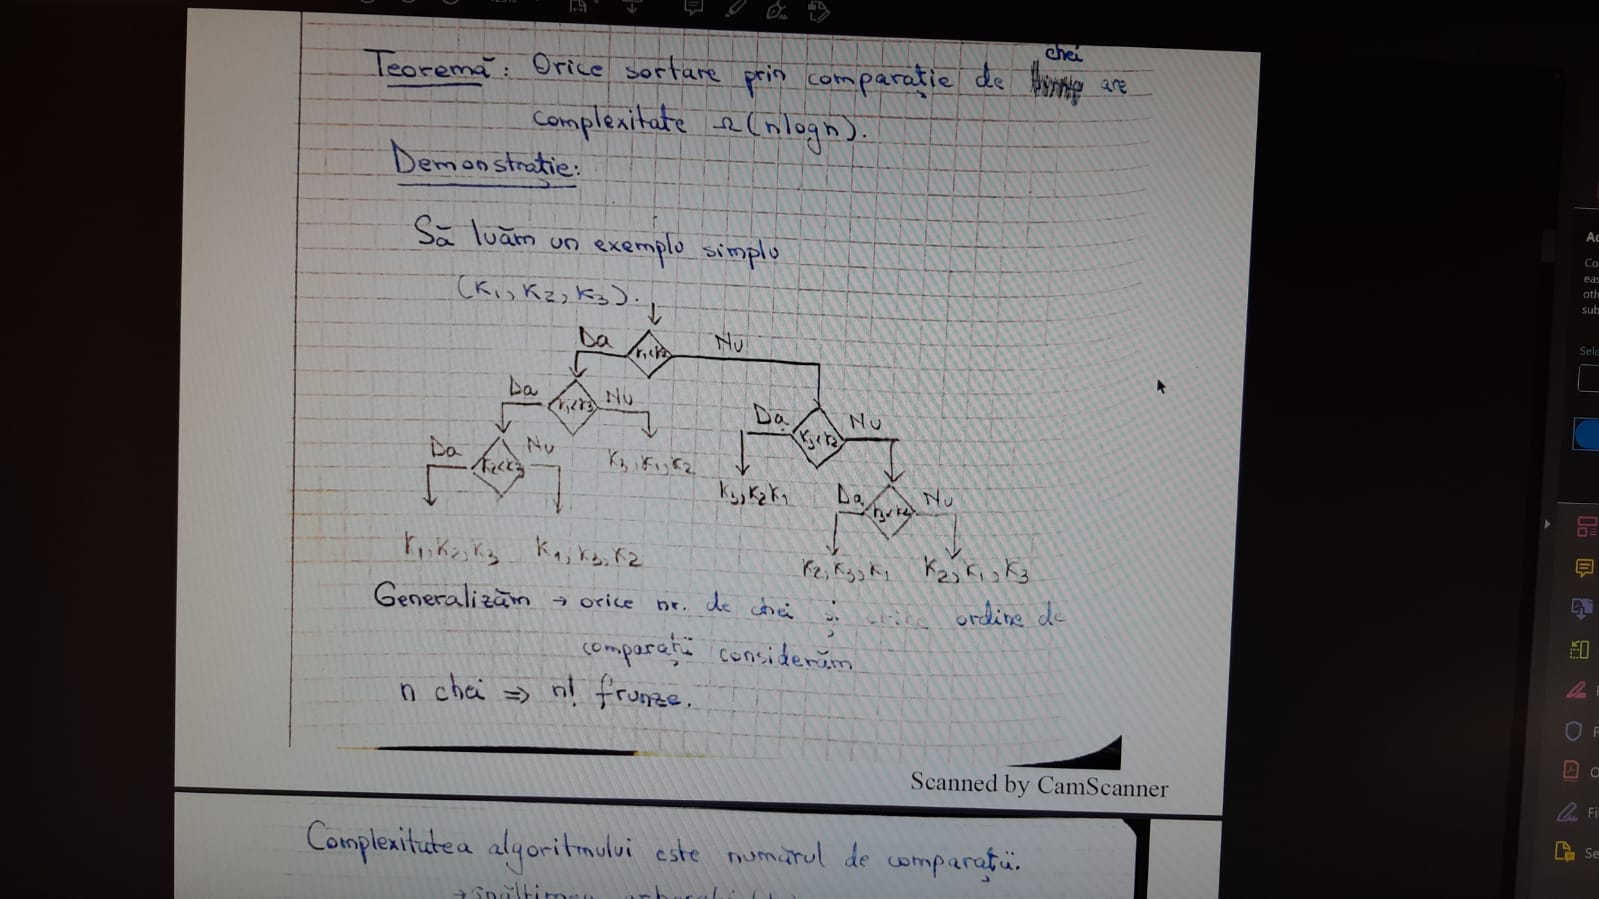 chei
Teoremă: Orice sortare prin comparație de are
complexitate Ω(nlogn).
Demonstratie:
Să luăm un exemplu simplu
(K1, K2, K3).
Da Nu
K1<K2
Da Nu
K1<K3
Da Nu
K3<K2
Da Nu
K2<K3
K3, K1, K2
K3, K2 K1
Da Nu
K1, K2, K3 K1, K3, K2
K2, K3, K1 K2, K1, K3
Generalizăm → orice nr. de chei și orice ordine de
comparații considerăm
n chei ⇒ n! frunze.
Scanned by CamScanner
Complexitatea algoritmului este numărul de comparații.
→ înălțimea